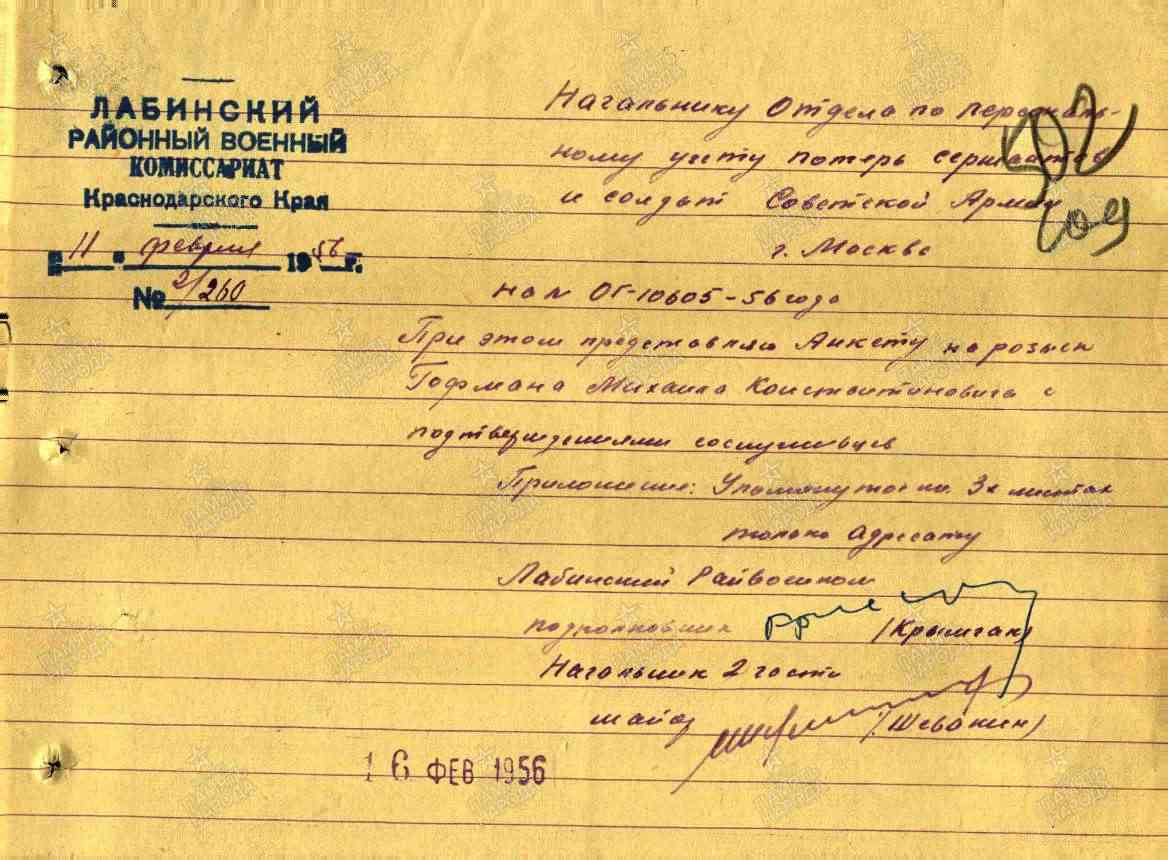 ЛАБИНСКИЙ
РАЙОННЫЙ ВОЕННЫЙ
КОМИССАРИАТ
Краснодарского Края
"11" февраля 1956 г.
№ 2/260
Начальнику Отдела по персональ-
ному учету потерь сержантов
и солдат Советской Армии
г. Москва
на № ОГ-10605-56 года
При этом представляю Анкету на розыск
Гофмана Михаила Константиновича с
подтверждениями сослуживцев
Приложение: Упомянутое на 3х листах
только адресату
Лабинский Райвоенком
подполковник (Крымган)
Начальник 2 части
майор (Шевакин)
16 ФЕВ 1956
ПАМЯТЬ НАРОДА